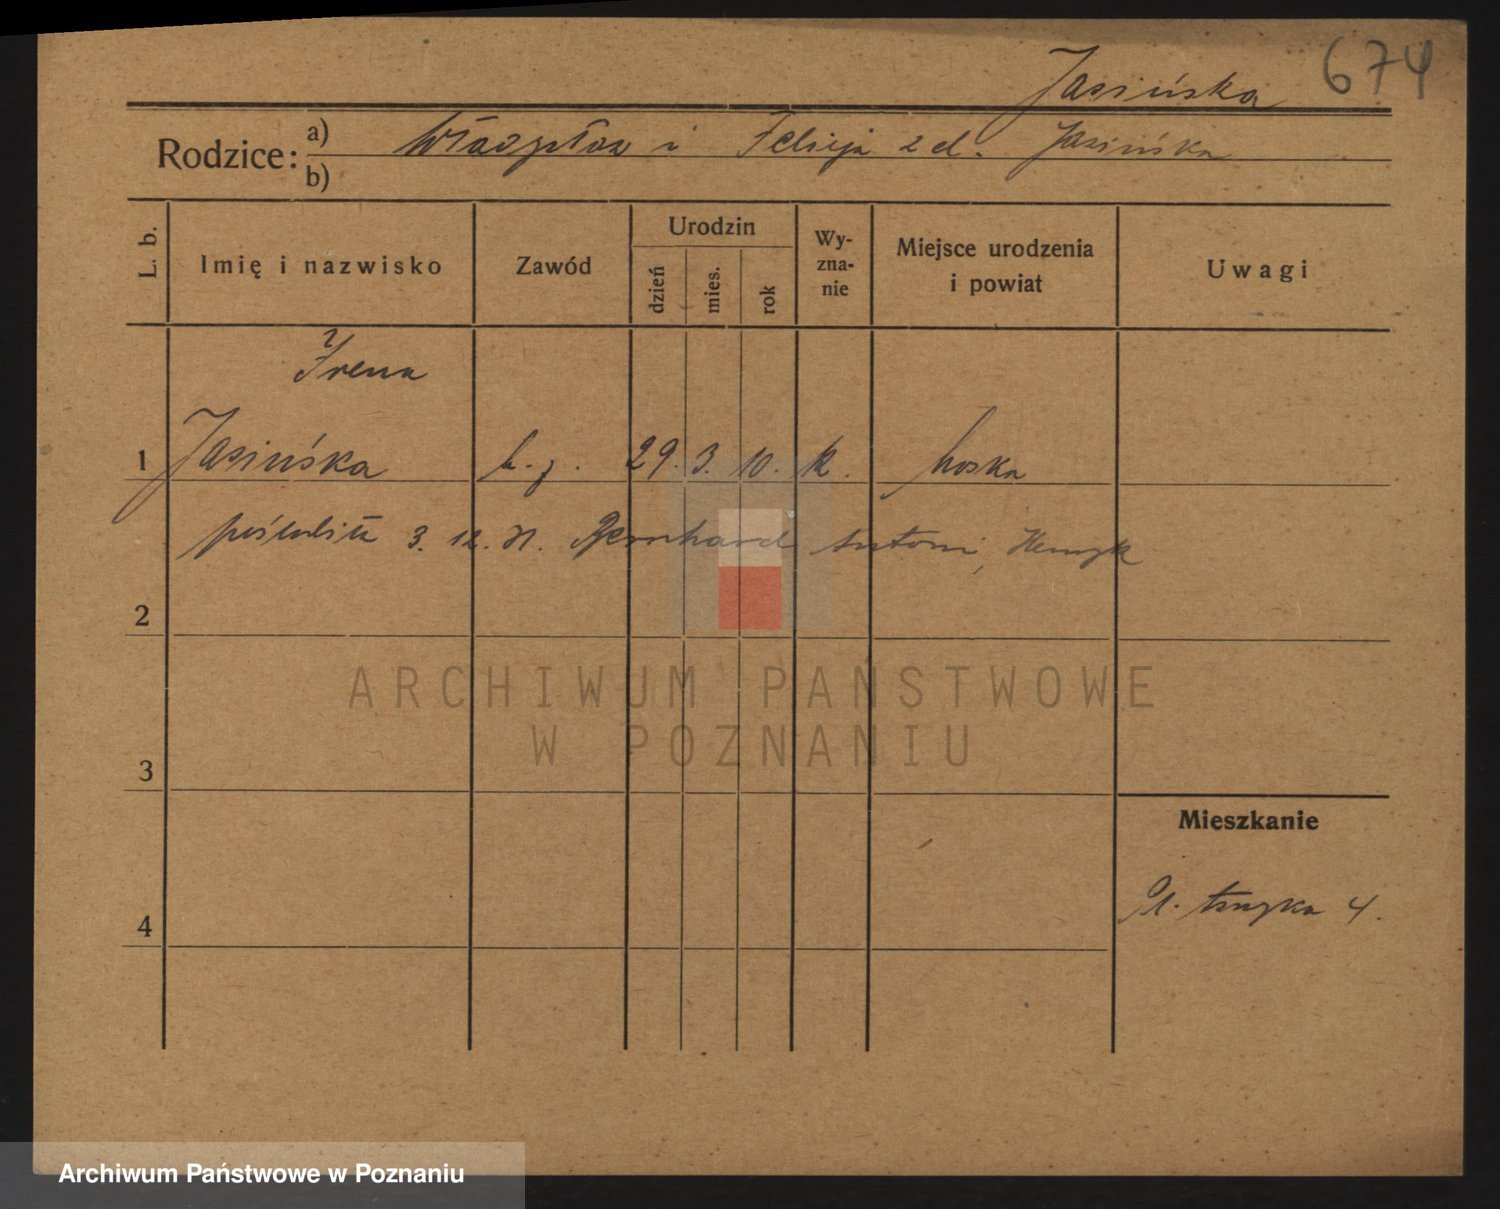 674
Jasińska
Rodzice: a) Władysław i Felicja z d. Jasińska
b)
L. b.
Imię i nazwisko
Zawód
Urodzin
dzień
mies.
rok
Wy-
zna-
nie
Miejsce urodzenia
i powiat
Uwagi
Irena
1 Jasińska b. z. 29. 3. 10. k.
poślubiła 3. 12. 31. Bernhard Antoni, Henryk
2
ARCHIWUM PAŃSTWOWE
W POZNANIU
3
Mieszkanie
Pl. 4.
4
Archiwum Państwowe w Poznaniu